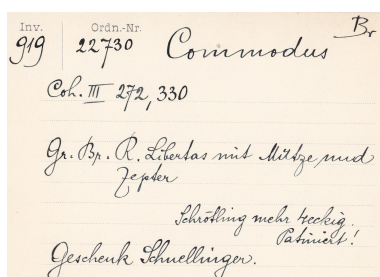 Br
Inv. Ordn.-Nr.
919 22730 Commodus
Coh. III 272, 330
Gr. Br. R. Libertas mit Mütze und
Zepter
Schrötling mehr 4eckig.
Patiniert!
Geschenk Schnellinger.